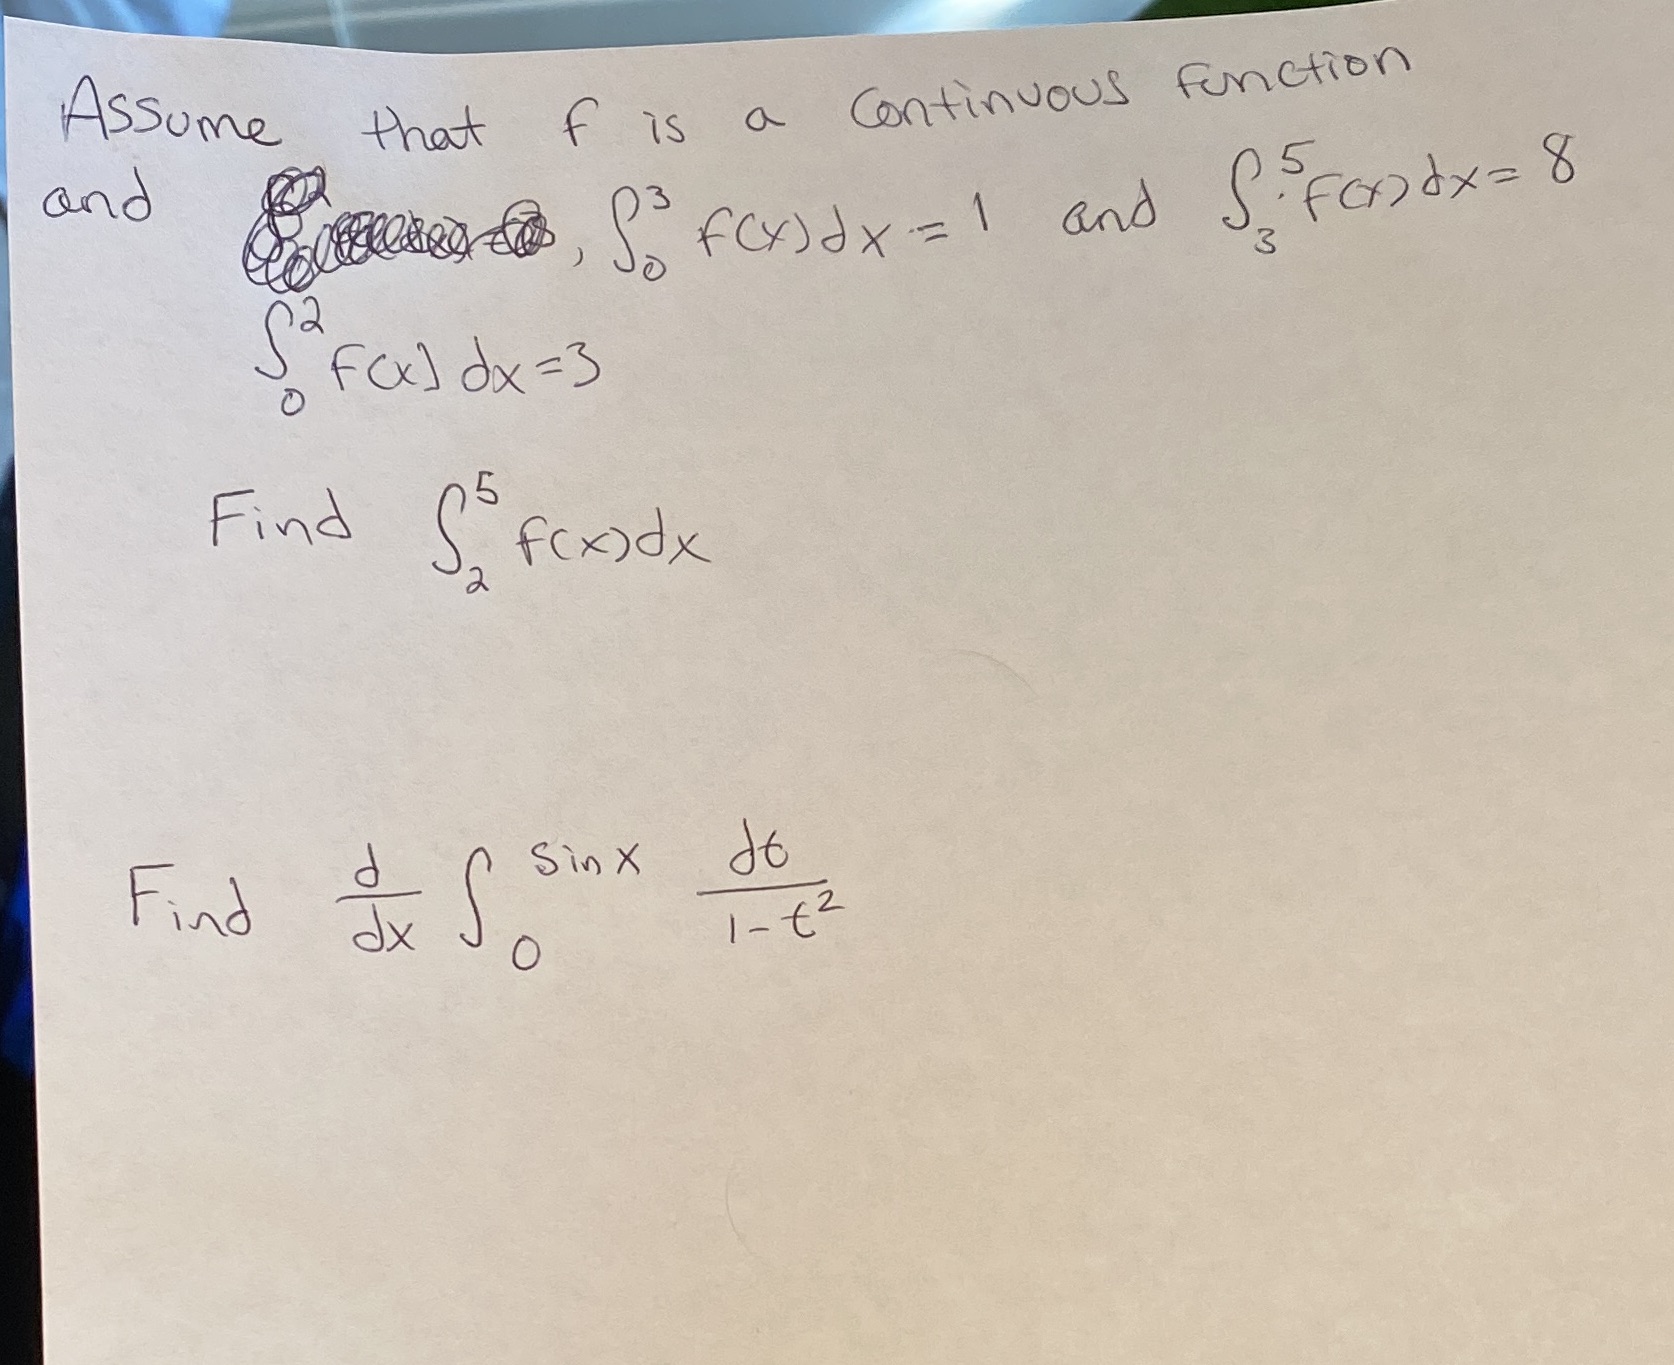 Assume that f is a continuous function
and , ∫₀³ f(x)dx = 1 and ∫₃⁵ f(x)dx = 8
∫₀² f(x) dx = 3
Find ∫₂⁵ f(x)dx
Find d/dx ∫₀^sin x dt/(1-t²)